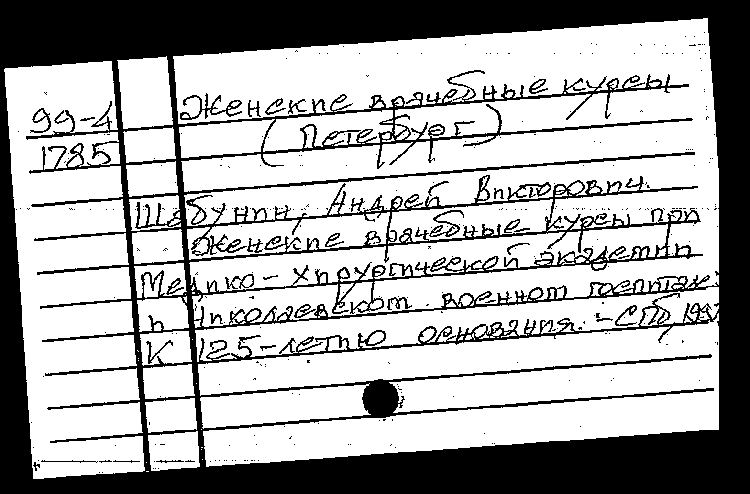 Женские врачебные курсы
99-4 (Петербург)
1785
Шабунин, Андрей Викторович.
Женские врачебные курсы при
Медико-хирургической академии
и Николаевском военном госпитале:
К 125-летию основания. - СПб,